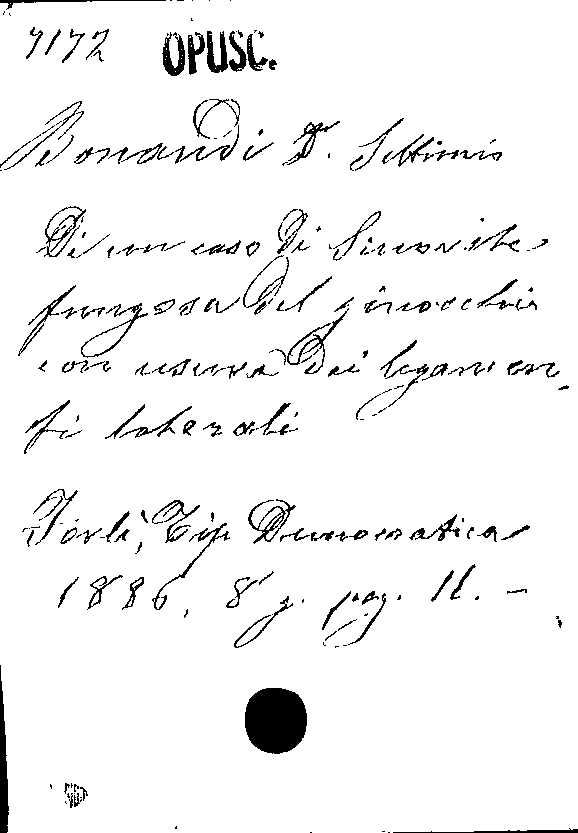 7172 OPUSC.
Bonandi Dr. Settimio
Di un caso di Sinovite
fungosa del ginocchio
con usura dei legamen
ti laterali
Forlì, Tip Democratica
1886, 8° g. pag. 11. -